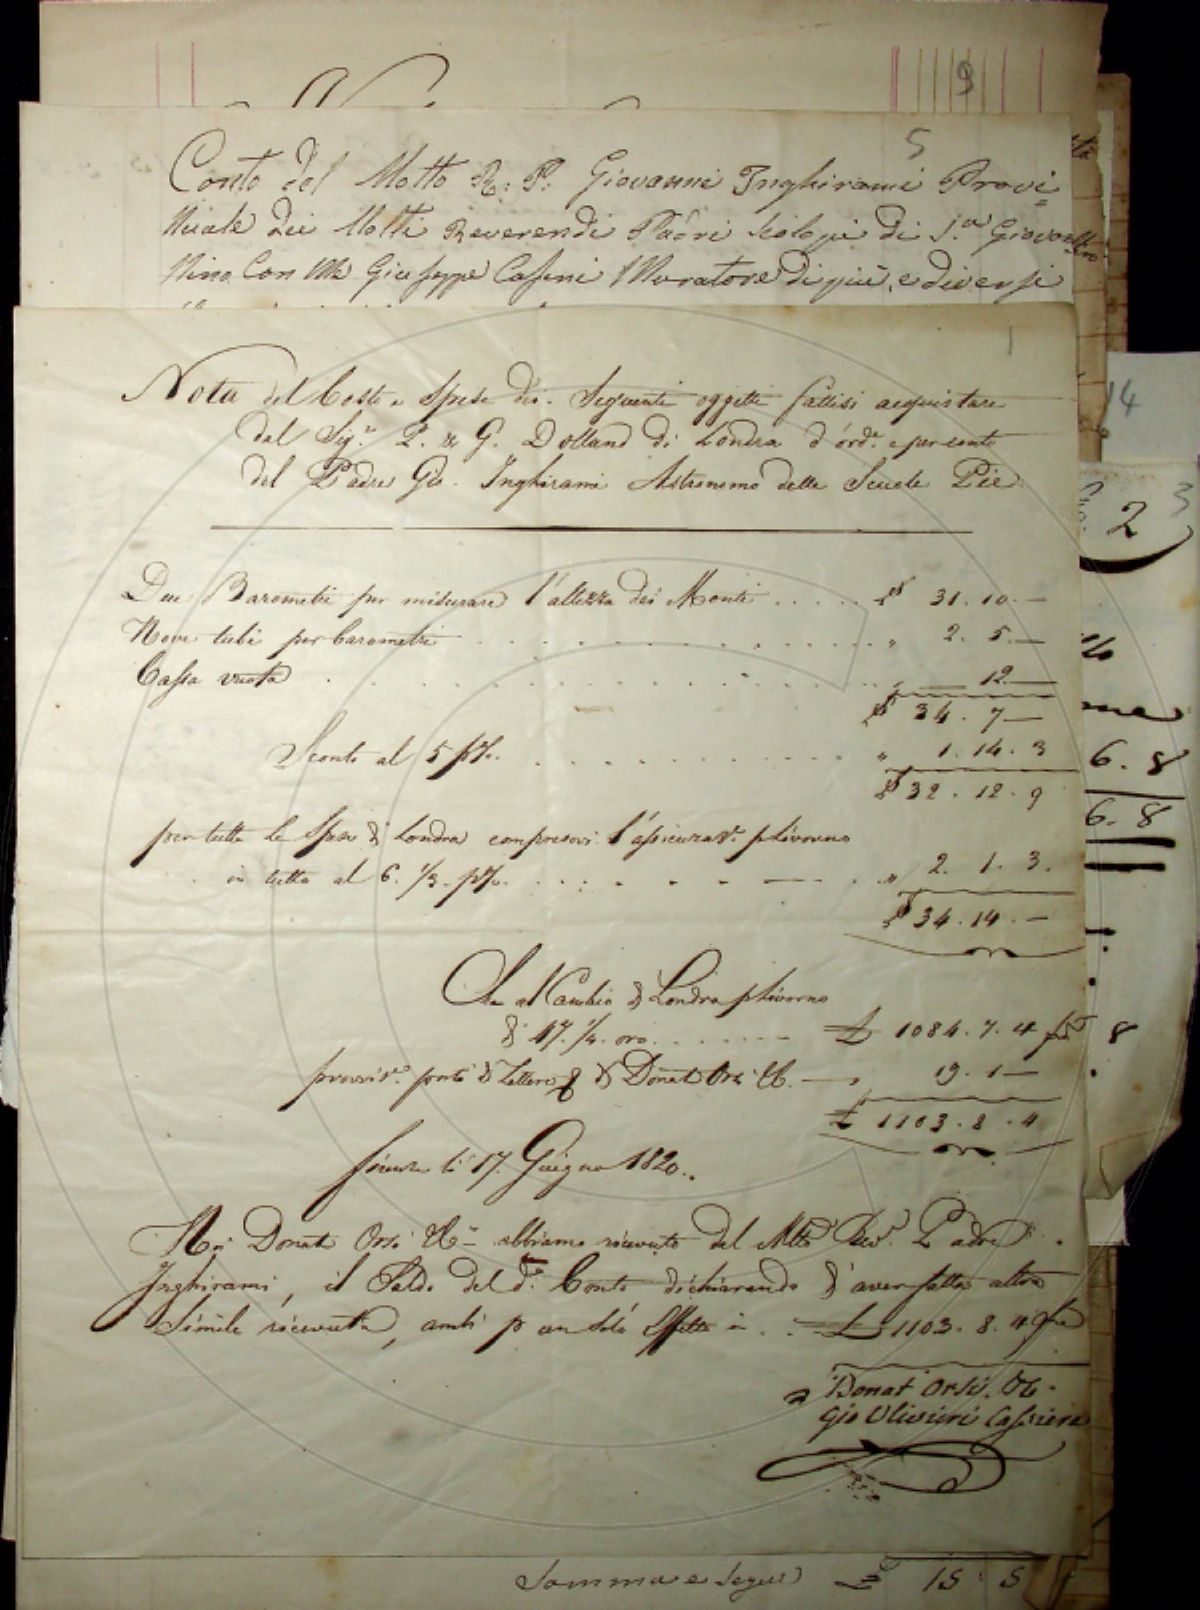 9
5
Conto del Molto R: P: Giovanni Inghirami Provi=
nciale dei Molti Reverendi Padri Scolopi di S.n Giovan
nino Con Me Giuseppe Casini Muratore di più, e diversi
1
Nota del Costo e Spese dei Seguenti oggetti fattisi acquistare
dal Sigr. P. & G. Dolland di Londra d'ord.e e per conto
del Padre Gio. Inghirami Astronomo delle Scuole Pie
Due Barometri per misurare l'altezza dei Monti ..... £ 31. 10. —
Nove tubi per barometri . . . . . " 2. 5. —
Cassa vuota . . . . . " — 12. —
£ 34. 7 —
Sconto al 5 p%. . . . . . " 1. 14. 3
£ 32. 12. 9
per tutte le Spese di Londra compresovi l'assicuraz.e p Livorno
in tutto al 6. 1/3. p%. . . . . " 2. 1. 3.
£ 34. 14. —
Che al Cambio di Londra p Livorno
di 47. 1/4. oro . . . . . £ 1084. 7. 4
provvis.e porti di Lettere & di Donat Orsi & C. — " 19. 1 —
£ 1103. 8. 4
Firenze li 17. Giugno 1820..
Noi Donat Orsi & C. abbiamo ricevuto dal Mlto Rev. Padre
Inghirami, il Saldo del d.o Conto dichiarando d'aver fatta altra
Simile ricevuta, ambi p un Solo Effetto in . . £ 1103. 8. 4
Donat Orsi. & C.
Gio Ulivieri Cassiere
14
3
2
6. 8
6. 8
8
Somma e Segue £ 15 : 5